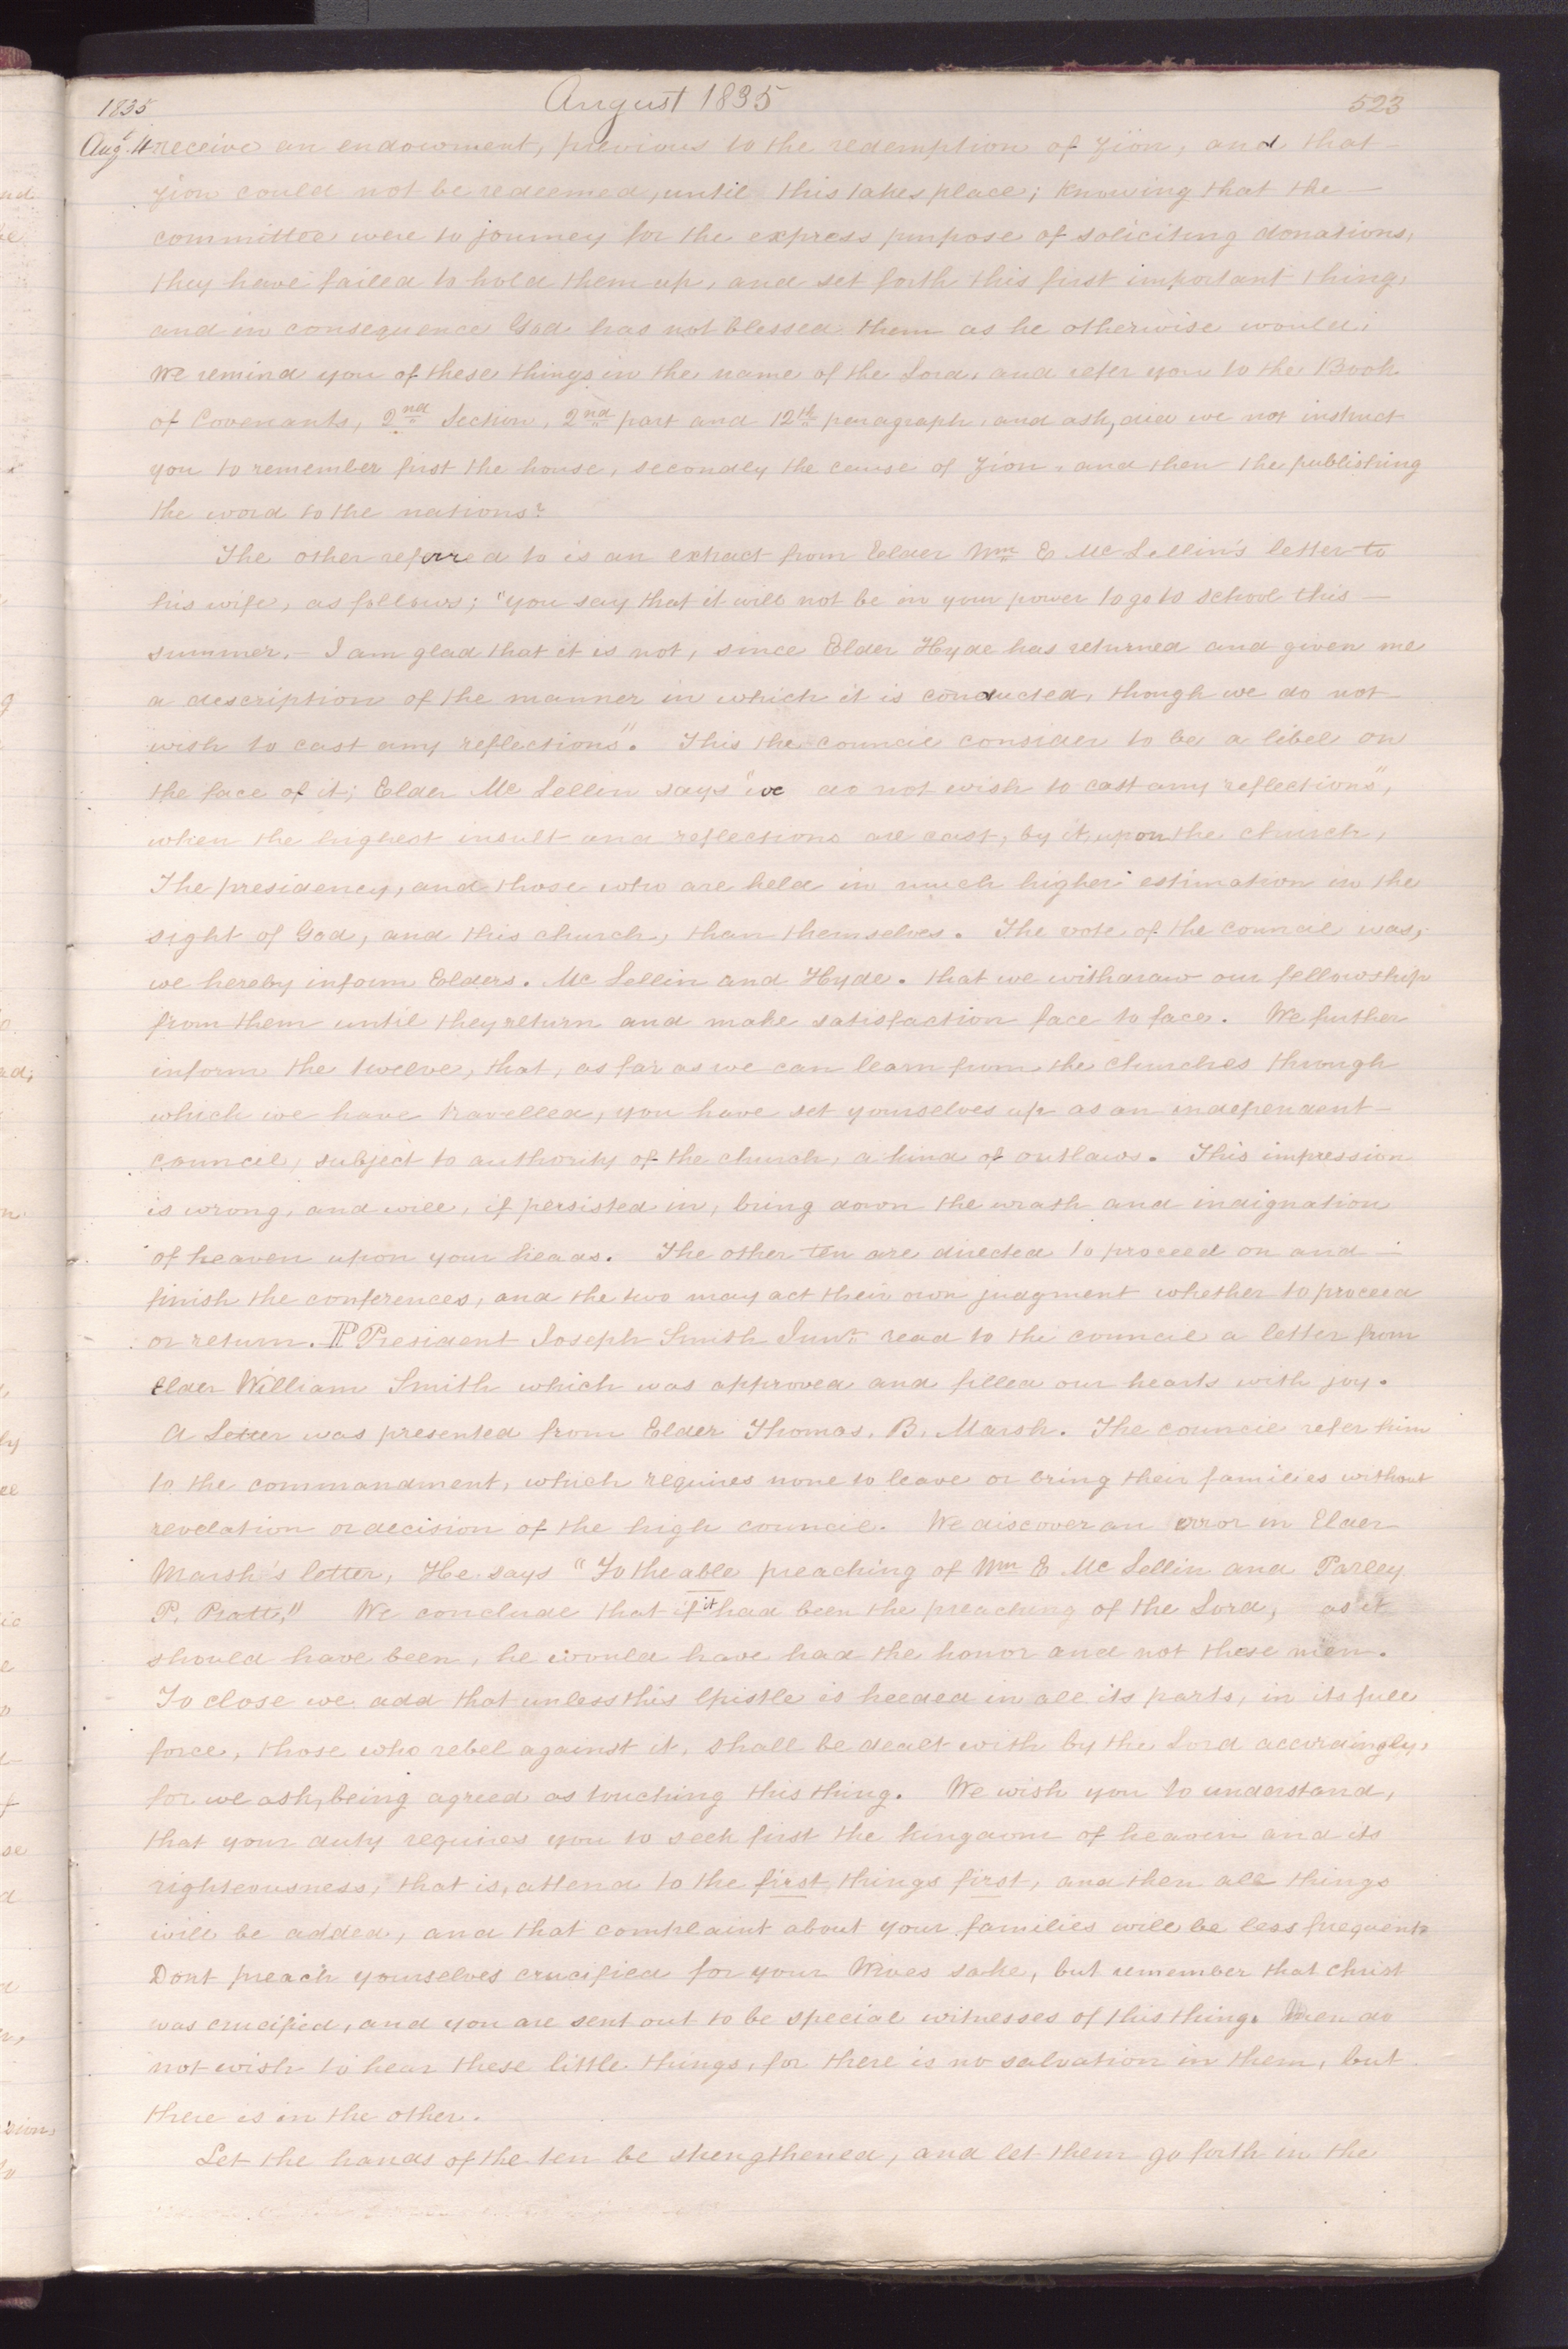 1835 August 1835 523
Augt. 4 receive an endowment, previous to the redemption of Zion, and that
Zion could not be redeemed, until this takes place; knowing that the
committee were to journey for the express purpose of soliciting donations,
they have failed to hold them up, and set forth this first important thing,
and in consequence God has not blessed them as he otherwise would;
We remind you of these things in the name of the Lord, and refer you to the Book
of Covenants, 2nd Section, 2nd part and 12th paragraph, and ask, did we not instruct
you to remember first the house, secondly the cause of Zion, and then the publishing
the word to the nations?
The other referred to is an extract from Elder Wm E McLellin's letter to
his wife, as follows; "You say that it will not be in your power to go to school this
summer.- I am glad that it is not, since Elder Hyde has returned and given me
a description of the manner in which it is conducted, though we do not
wish to cast any reflections". This the council consider to be a libel on
the face of it; Elder McLellin says "we do not wish to cast any reflections",
when the highest insult and reflections are cast, by it, upon the church,
The presidency, and those who are held in much higher estimation in the
sight of God, and this church, than themselves. The vote of the council was,
we hereby inform Elders. McLellin and Hyde. that we withdraw our fellowship
from them until they return and make satisfaction face to face. We further
inform the twelve, that, as far as we can learn from the churches through
which we have travelled, you have set yourselves up as an independent
council, subject to authority of the church, a kind of outlaws. This impression
is wrong, and will, if persisted in, bring down the wrath and indignation
of heaven upon your heads. The other ten are directed to proceed on and
finish the conferences, and the two may act their own judgment whether to proceed
or return. ¶ President Joseph Smith Junr. read to the council a letter from
Elder William Smith which was approved and filled our hearts with joy.
A Letter was presented from Elder Thomas. B. Marsh. The council refer him
to the commandment, which requires none to leave or bring their families without
revelation or decision of the high council. We discover an error in Elder
Marsh's letter, He says "To the able preaching of Wm E McLellin and Parley
P. Pratt," We conclude that if it had been the preaching of the Lord, as it
should have been, he would have had the honor and not these men.
To close we add that unless this Epistle is heeded in all its parts, in its full
force, those who rebel against it, shall be dealt with by the Lord accordingly,
for we ask, being agreed as touching this thing. We wish you to understand,
that your duty requires you to seek first the kingdom of heaven and its
righteousness; that is, attend to the first things first, and then all things
will be added, and that complaint about your families will be less frequent.
Dont preach yourselves crucified for your Wives sake, but remember that Christ
was crucified, and you are sent out to be special witnesses of this thing. Men do
not wish to hear these little things, for there is no salvation in them, but
there is in the other.
Let the hands of the ten be strengthened, and let them go forth in the